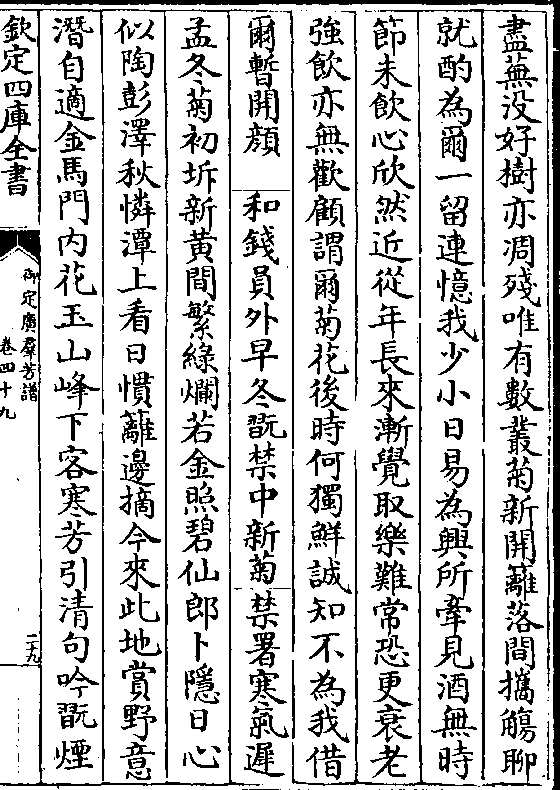 盡蕪没好樹亦凋殘唯有數叢菊新開籬落間攜觴聊
就酌為爾一留連憶我少小日易為興所牽見酒無時
節未飲心欣然近從年長來漸覺取樂難常恐更衰老
強飲亦無歡顧謂爾菊花後時何獨鮮誠知不為我借
爾暫開顔　和錢員外早冬翫禁中新菊　禁署寒氣遲
孟冬菊初坼新黄間繁綠爛若金照碧仙郎卜隱日心
似陶彭澤秋憐潭上看日慣籬邊摘今來此地賞野意
潛自適金馬門内花玉山峰下客寒芳引清句吟翫煙
欽定四庫全書
御定廣羣芳譜
卷四十九
二十九